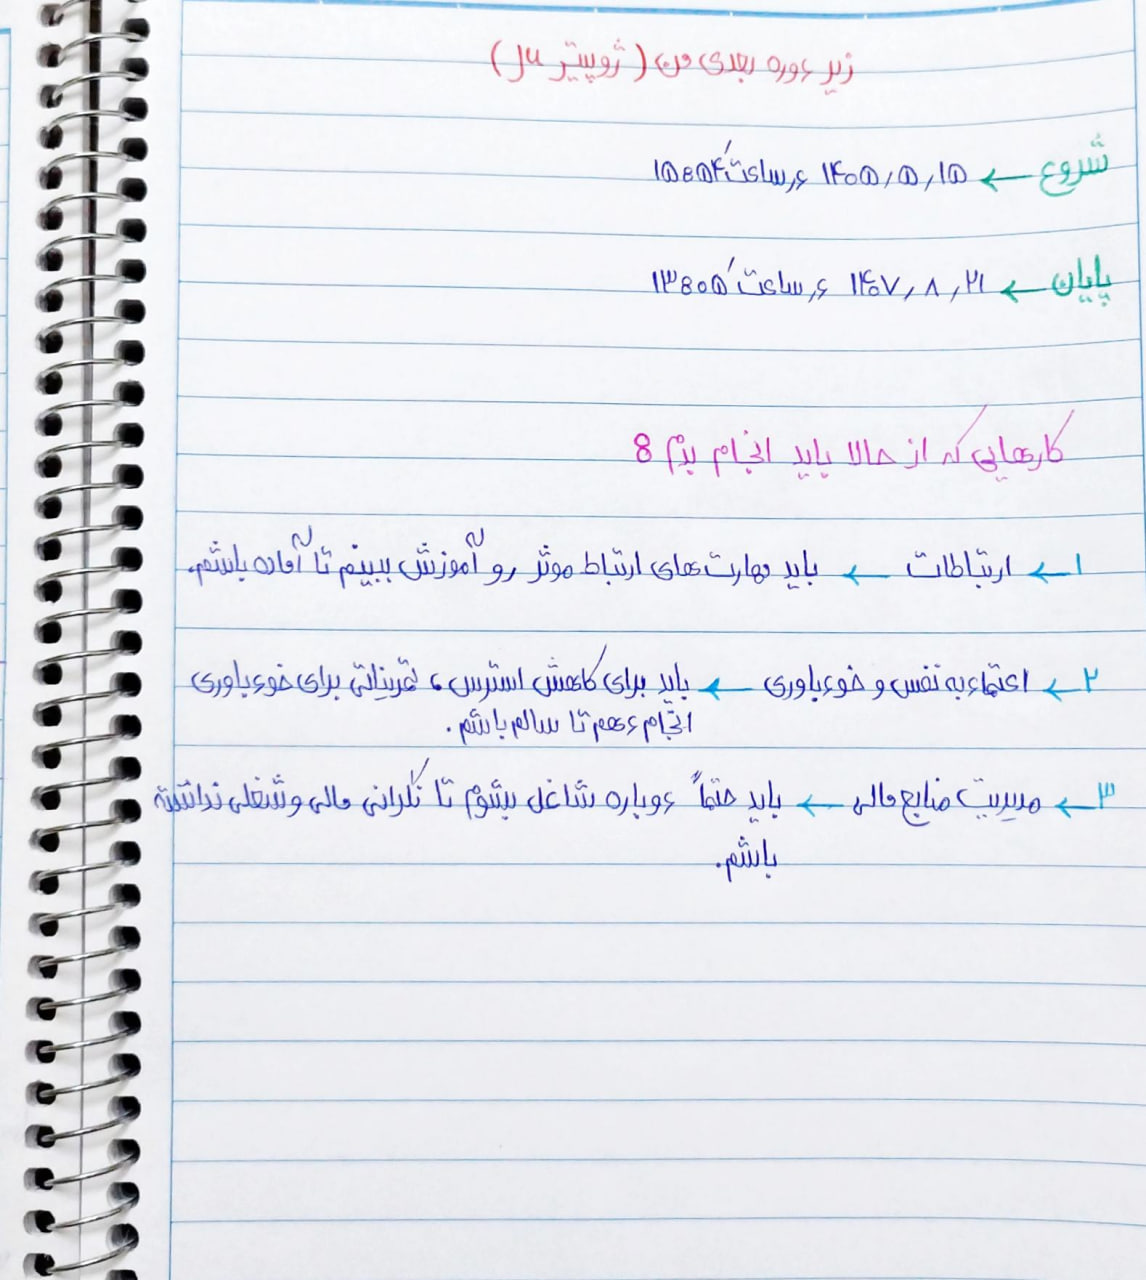 زیر دوره بعدی من (ژوپیتر JU)
شروع ← ۱۴۰۵٫۵٫۱۵ در ساعت ۱۵:۵۴
پایان ← ۱۴۰۷٫۸٫۲۱ در ساعت ۱۳:۰۵
کارهایی که از حالا باید انجام بدم:
۱ ← ارتباطات ← باید مهارت‌های ارتباط موثر رو آموزش ببینم تا آماده باشم.
۲ ← اعتماد به نفس و خودباوری ← باید برای کاهش استرس، تمریناتی برای خودباوری
انجام دهم تا سالم باشم.
۳ ← مدیریت منابع مالی ← باید حتماً دوباره شاغل بشوم تا نگرانی مالی و شغلی نداشته
باشم.